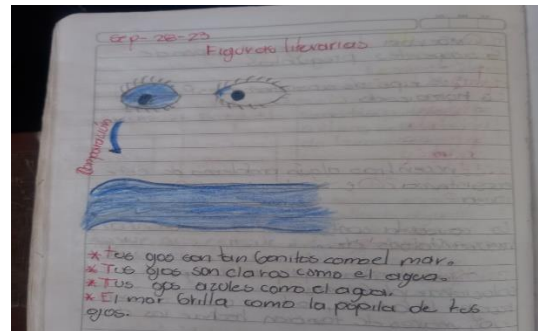 Sep-28-23
Figuras literarias
Comparación
* tus ojos son tan bonitos como el mar.
* Tus ojos son claros como el agua.
* Tus ojos azules como el agua.
* El mar brilla como la pupila de tus
ojos.